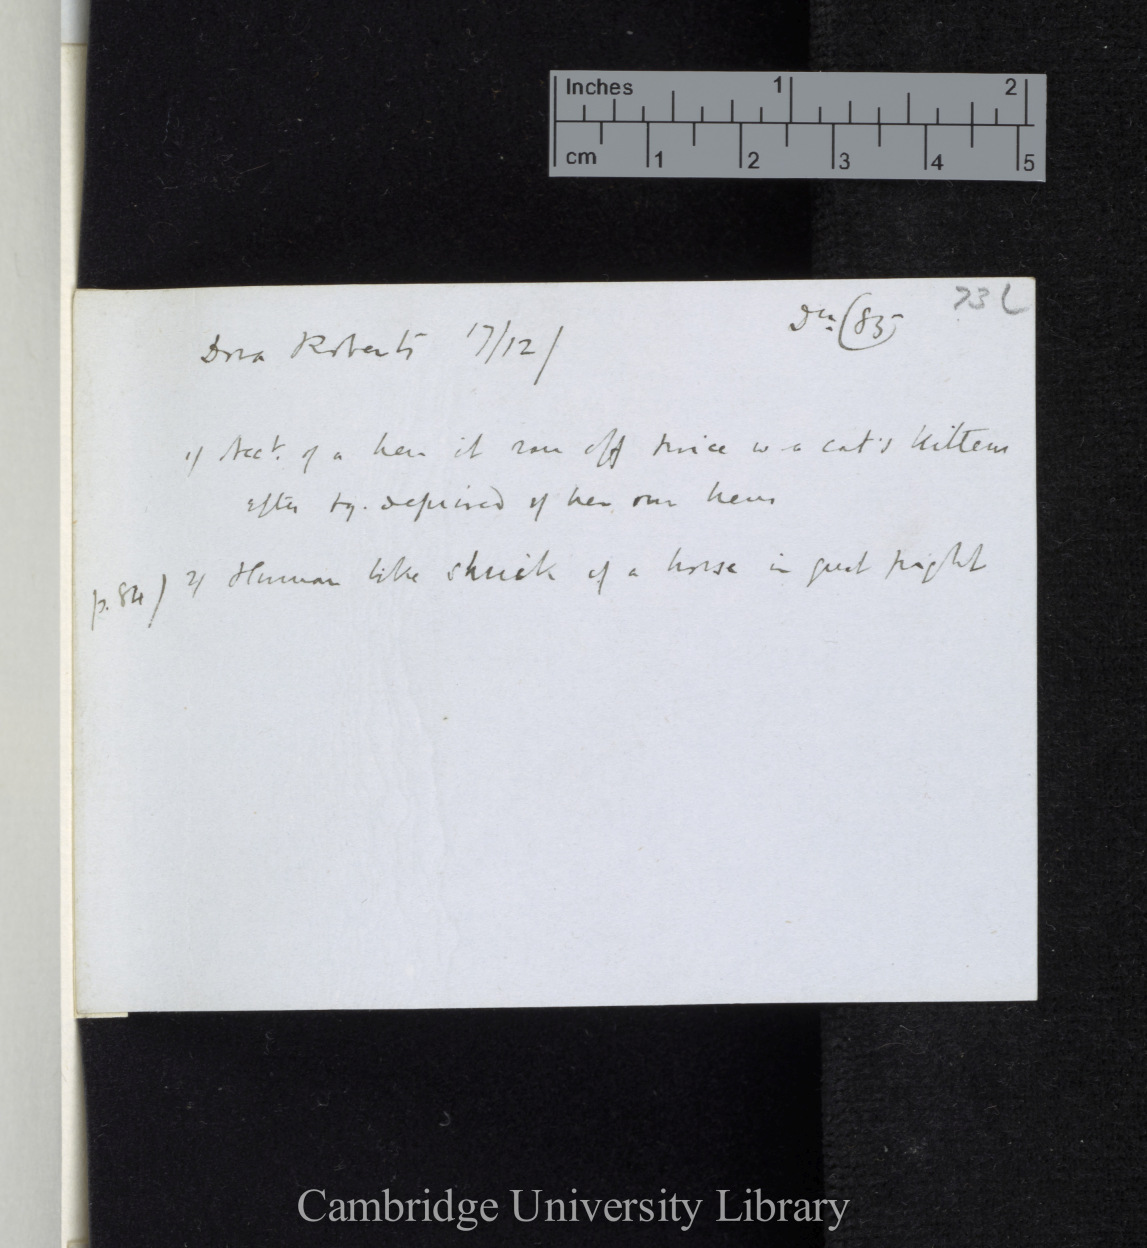 Inches 1 2
cm 1 2 3 4 5
73 L
Dn (85)
Dora Roberts 17/12/
1/ Acct. of a hen it ran off twice w a cat's kittens
after by. deprived of her own hens
p. 84) 2/ Human like shriek of a horse in great fright
Cambridge University Library